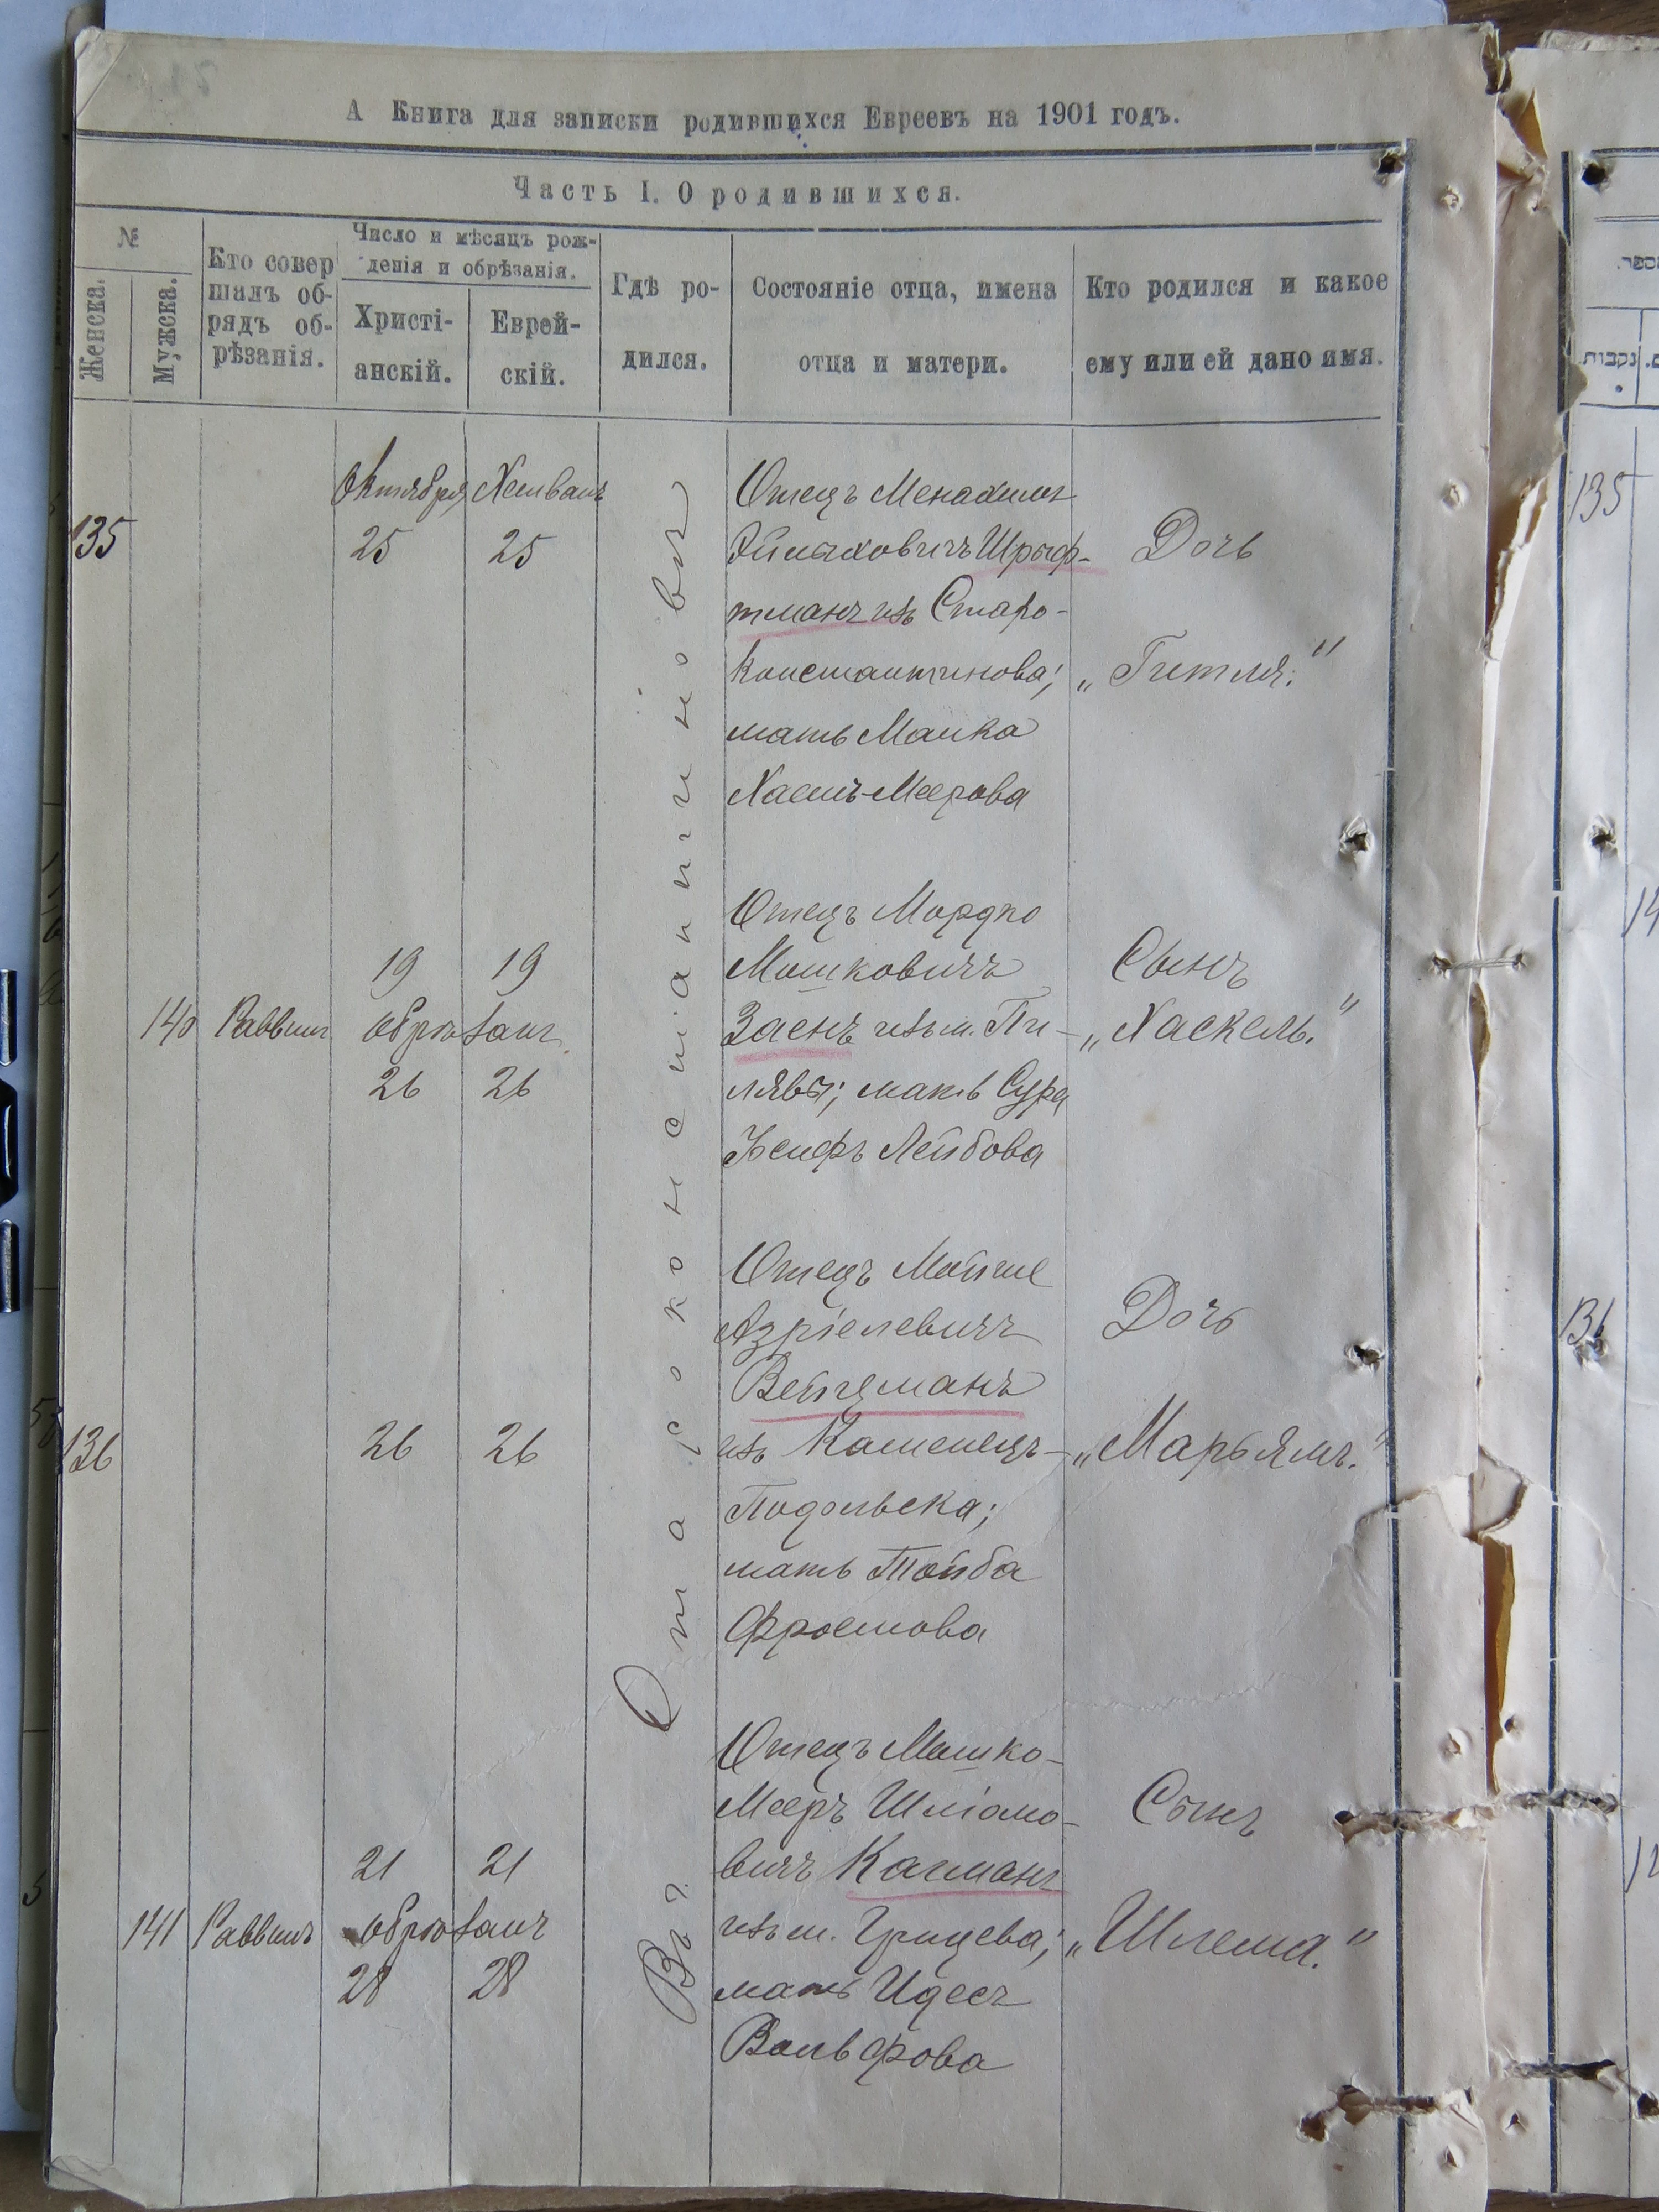 А Книга для записки родившихся Евреевъ на 1901 годъ.
Часть I. О родившихся.
№
Женска.
Мужска.
Кто совер
шалъ об-
рядъ об-
рѣзанія.
Число и мѣсяцъ рож-
денія и обрѣзанія.
Христі-
анскій.
Еврей-
скій.
Гдѣ ро-
дился.
Состояніе отца, имена
отца и матери.
Кто родился и какое
ему или ей дано имя.
Въ г. Староконстантиновѣ
135
Октября Хешванъ
25 25
Отецъ Менахимъ
Шрыф-
тманъ изъ Старо-
константинова;
мать Манка
Хаимъ-Меерова
Дочь
„Гитля."
140 Раввинъ
19 19
обрѣзанъ
26 26
Отецъ Мордко
Мошковичъ
Заенъ изъ м. Пи-
лявы; мать Сура
Лейбова
Сынъ
„Хаскель."
136
26 26
Отецъ Мойше
Азріелевичъ
Вейцманъ
изъ Каменецъ-
Подольска;
мать Тойба
Фроимова
Дочь
„Марьямъ."
141 Раввинъ
21 21
обрѣзанъ
28 28
Отецъ Мошко-
Мееръ Шліомо-
вичъ Кагманъ
изъ м. Грицева;
мать Идесъ
Вольфова
Сынъ
„Шлема."
135
נקבות
136